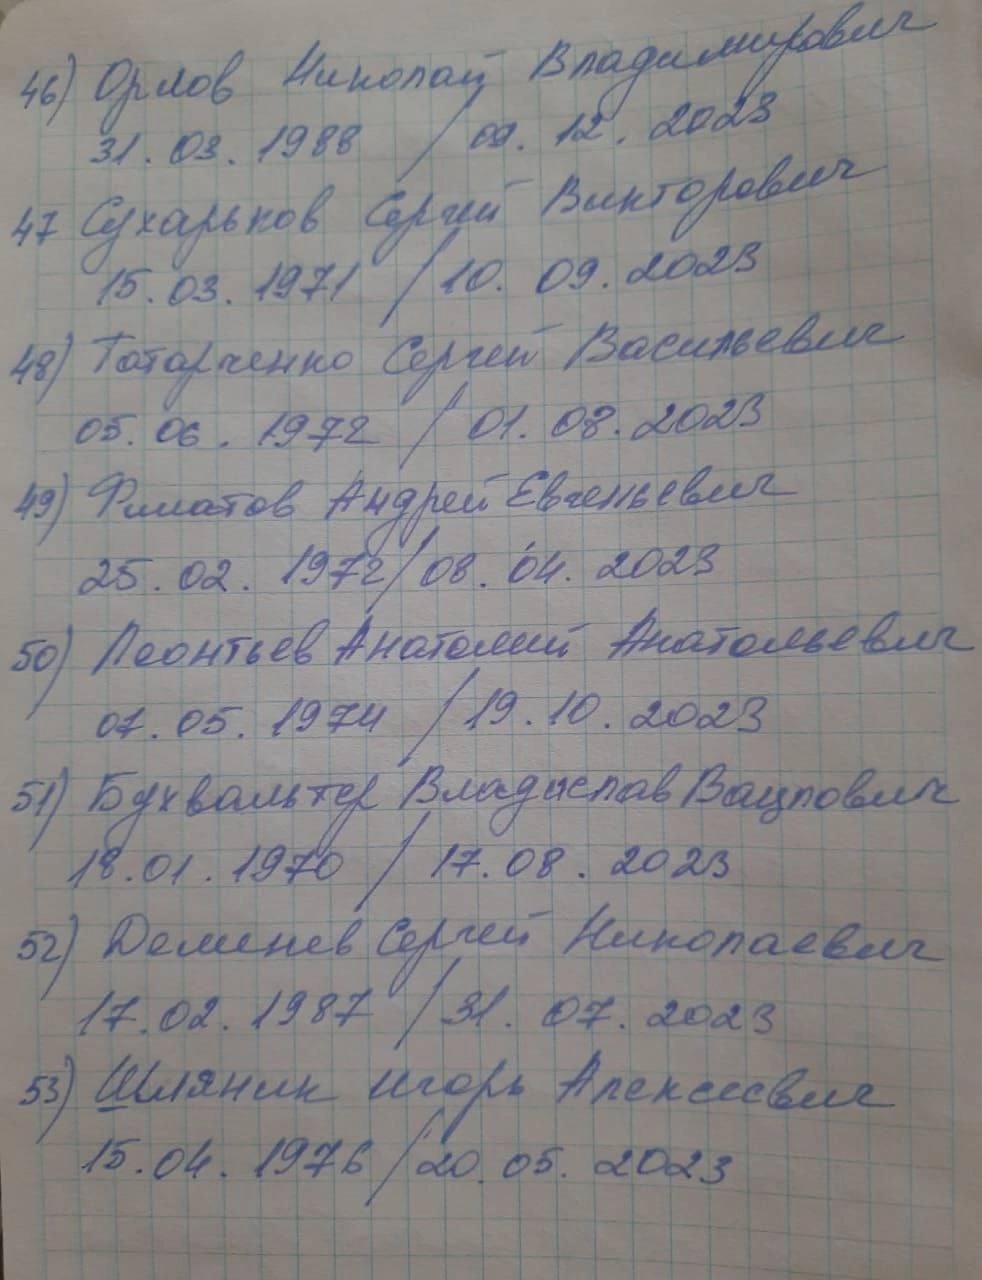 46) Орлов Николай Владимирович
31.03.1988 / 09.12.2023
47 Сухарьков Сергей Викторович
15.03.1971 / 10.09.2023
48) Татарченко Сергей Васильевич
05.06.1972 / 01.08.2023
49) Филатов Андрей Евгеньевич
25.02.1972 / 08.04.2023
50) Леонтьев Анатолий Анатольевич
07.05.1974 / 19.10.2023
51) Бухвальтер Владислав Вацлович
18.01.1970 / 17.08.2023
52) Деменев Сергей Николаевич
17.02.1987 / 31.07.2023
53) Шляник Игорь Алексеевич
15.04.1976 / 20.05.2023